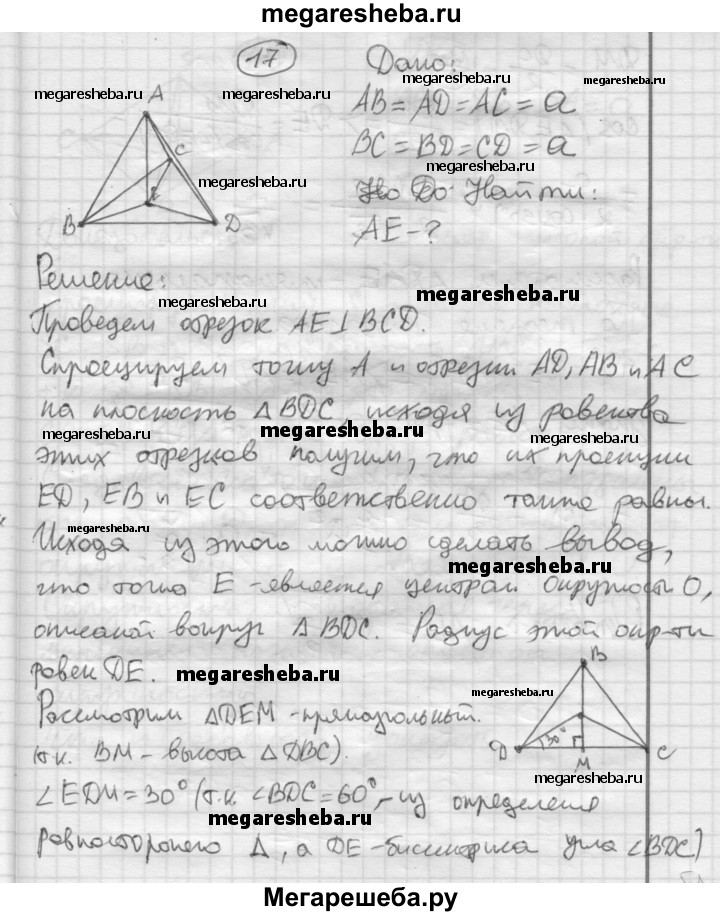 megaresheba.ru
17
Дано:
megaresheba.ru
megaresheba.ru
A
AB = AD = AC = a
megaresheba.ru
C
BC = BD = CD = a
megaresheba.ru
megaresheba.ru
E
Найти:
B
D
AE - ?
Решение:
megaresheba.ru
megaresheba.ru
Проведем отрезок AE ⊥ BCD.
Спроецируем точку A и отрезки AD, AB и AC
на плоскость ΔBDC, исходя из равенства
megaresheba.ru
megaresheba.ru
megaresheba.ru
этих отрезков получим, что их проекции
ED, EB и EC соответственно также равны.
megaresheba.ru
Исходя из этого можно сделать вывод,
megaresheba.ru
что точка E - является центром окружности O,
описаной вокруг ΔBDC. Радиус этой окр-ти
равен DE.
megaresheba.ru
B
megaresheba.ru
Рассмотрим ΔDEM - прямоугольный.
(т.к. BM - высота ΔDBC).
D
30°
C
M
megaresheba.ru
∠EDM = 30° (т.к. ∠BDC = 60°, - из определения
megaresheba.ru
равностороннего Δ, а DE - биссектриса угла ∠BDC)
Мегарешеба.ру